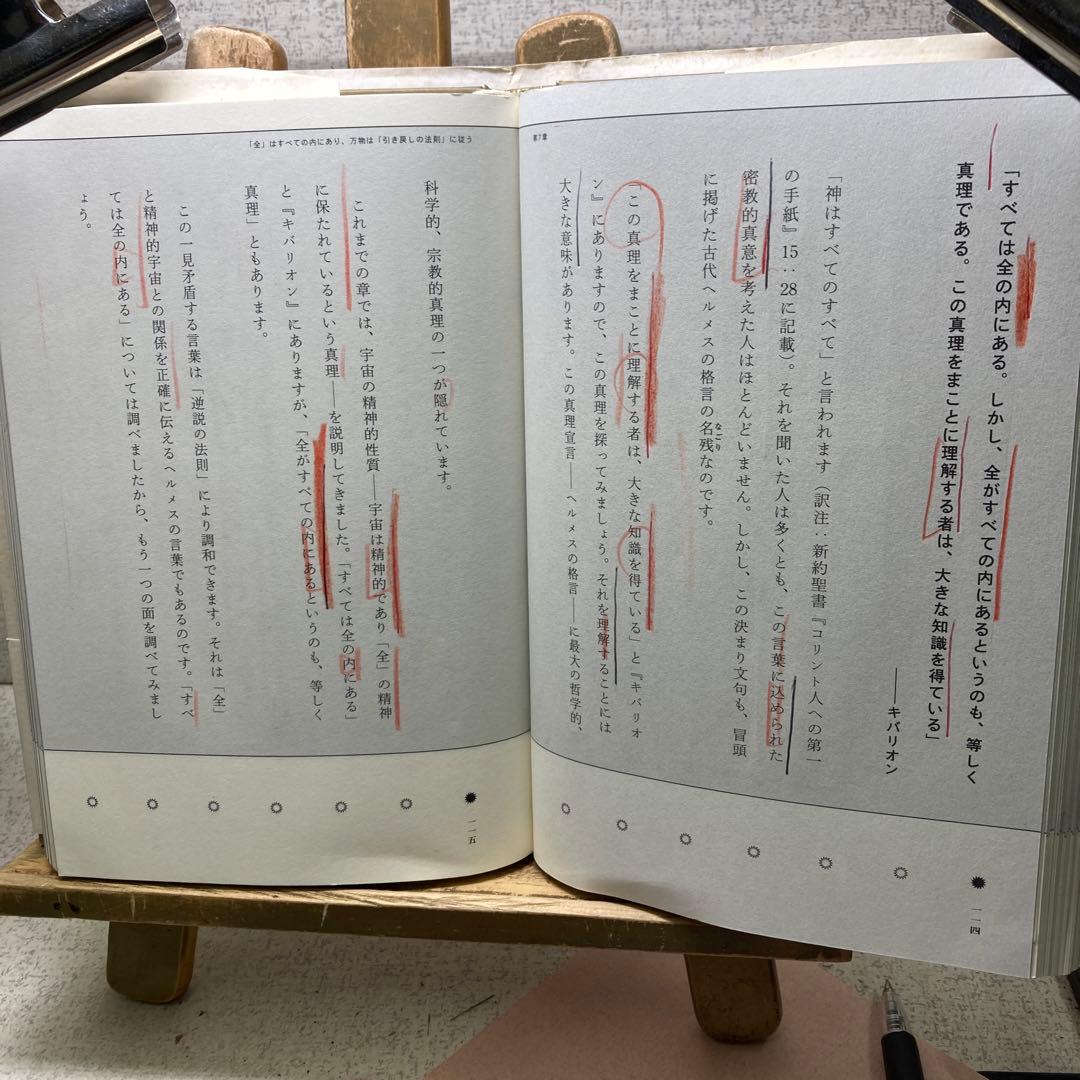 第7章
「すべては全の内にある。しかし、全がすべての内にあるというのも、等しく
真理である。この真理をまことに理解する者は、大きな知識を得ている」
――キバリオン
「神はすべてのすべて」と言われます（訳注：新約聖書『コリント人への第一
の手紙』15：28に記載）。それを聞いた人は多くとも、この言葉に込められた
密教的真意を考えた人はほとんどいません。しかし、この決まり文句も、冒頭
に掲げた古代ヘルメスの格言の名残なのです。
なごり
「この真理をまことに理解する者は、大きな知識を得ている」と『キバリオ
ン』にありますので、この真理を探ってみましょう。それを理解することには
大きな意味があります。この真理宣言――ヘルメスの格言――に最大の哲学的、
一一四
「全」はすべての内にあり、万物は「引き戻しの法則」に従う
科学的、宗教的真理の一つが隠れています。
これまでの章では、宇宙の精神的性質――宇宙は精神的であり「全」の精神
に保たれているという真理――を説明してきました。「すべては全の内にある」
と『キバリオン』にありますが、「全がすべての内にあるというのも、等しく
真理」ともあります。
この一見矛盾する言葉は「逆説の法則」により調和できます。それは「全」
と精神的宇宙との関係を正確に伝えるヘルメスの言葉でもあるのです。「すべ
ては全の内にある」については調べましたから、もう一つの面を調べてみまし
ょう。
一一五